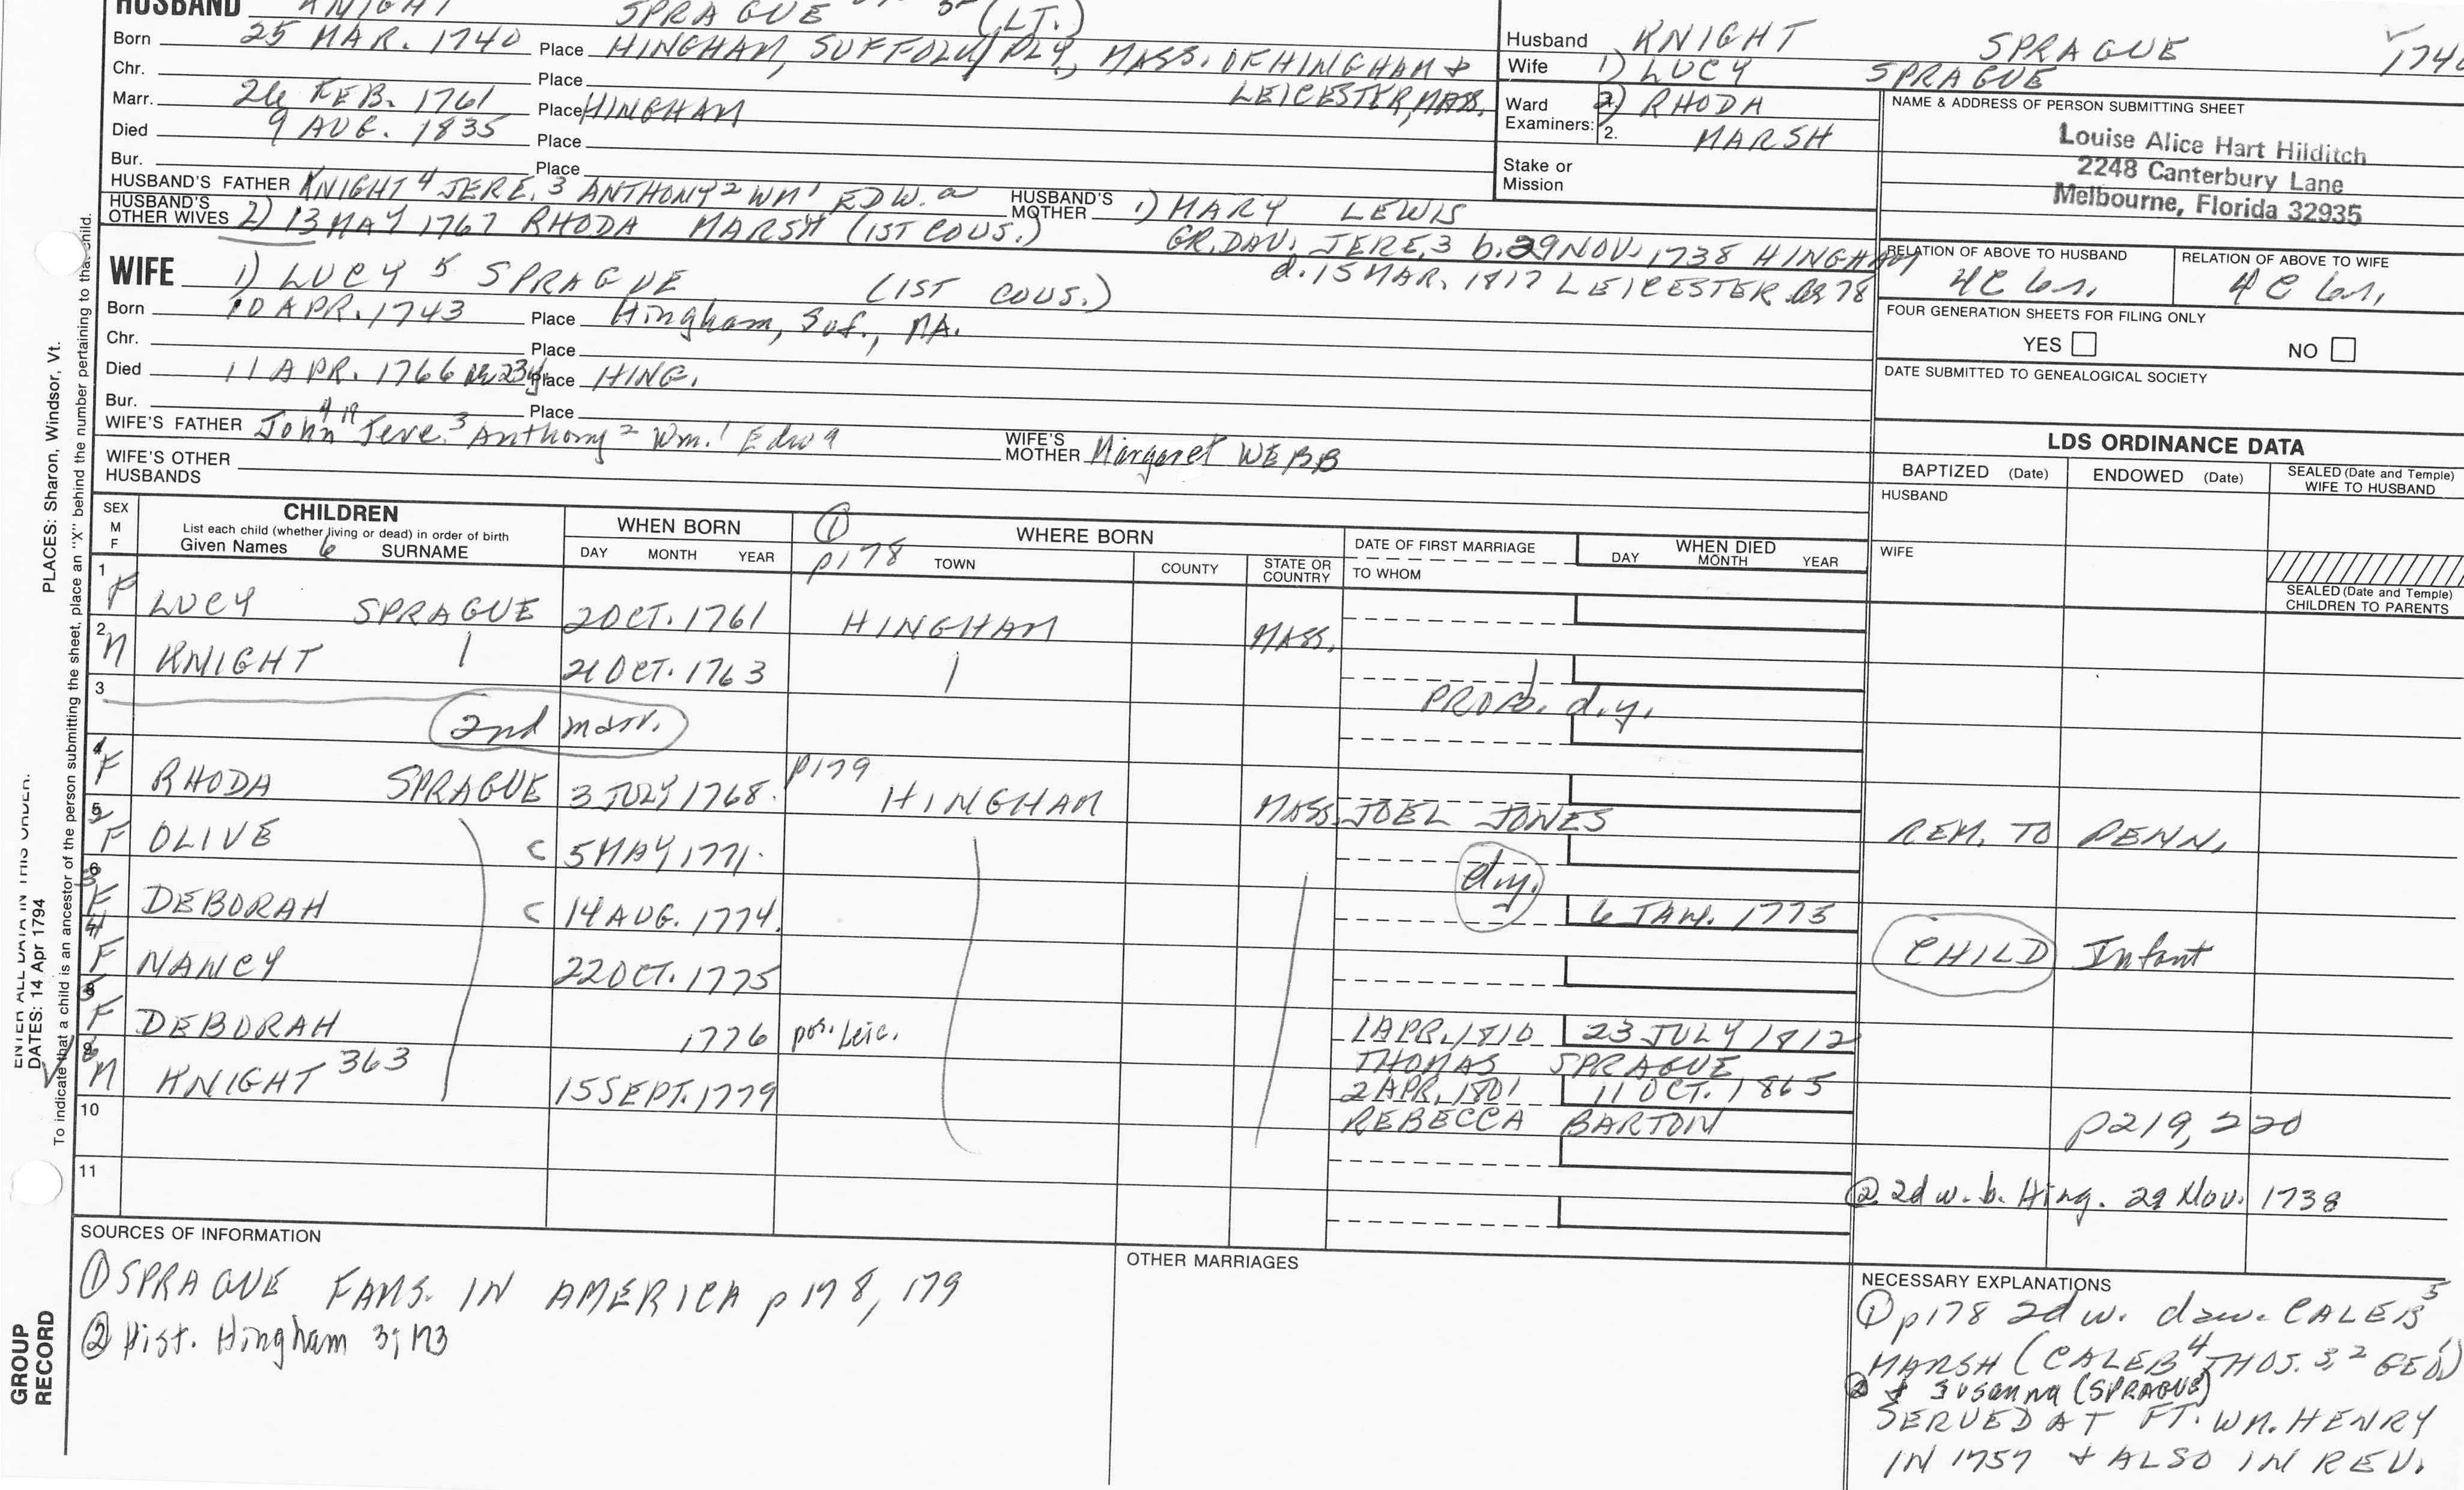 HUSBAND KNIGHT SPRAGUE 5 (LT.)
Born 25 MAR. 1740 Place HINGHAM, SUFFOLK/PLY., MASS. OF HINGHAM &
LEICESTER, MASS.
Chr. Place
Marr. 26 FEB. 1761 Place HINGHAM
Died 9 AUG. 1835 Place
Bur. Place
HUSBAND'S FATHER KNIGHT 4 JERE. 3 ANTHONY 2 WM 1 EDW. a HUSBAND'S MOTHER 1) MARY LEWIS
HUSBAND'S OTHER WIVES 2) 13 MAY 1767 RHODA MARSH (1ST COUS.) GR. DAU. JERE. 3 b. 29 NOV. 1738 HINGHAM
d. 15 MAR. 1817 LEICESTER ae 78
Husband KNIGHT SPRAGUE 1740
Wife 1) LUCY SPRAGUE
Ward 2) RHODA
Examiners: 2. MARSH
Stake or
Mission
NAME & ADDRESS OF PERSON SUBMITTING SHEET
Louise Alice Hart Hilditch
2248 Canterbury Lane
Melbourne, Florida 32935
RELATION OF ABOVE TO HUSBAND RELATION OF ABOVE TO WIFE
4C 6r. 4C 6r.
FOUR GENERATION SHEETS FOR FILING ONLY
YES NO
DATE SUBMITTED TO GENEALOGICAL SOCIETY
WIFE 1) LUCY 5 SPRAGUE (1ST COUS.)
Born 10 APR. 1743 Place Hingham, Suf., MA.
Chr. Place
Died 11 APR. 1766 ae 23y Place HING.
Bur. Place
WIFE'S FATHER John 4 Jere. 3 Anthony 2 Wm. 1 Edw a WIFE'S MOTHER Margaret WEBB
WIFE'S OTHER
HUSBANDS
LDS ORDINANCE DATA
BAPTIZED (Date) ENDOWED (Date) SEALED (Date and Temple)
WIFE TO HUSBAND
HUSBAND
WIFE
SEALED (Date and Temple)
CHILDREN TO PARENTS
SEX
M
F
CHILDREN
List each child (whether living or dead) in order of birth
Given Names 6 SURNAME
WHEN BORN
DAY MONTH YEAR
① p178
WHERE BORN
TOWN COUNTY STATE OR COUNTRY
DATE OF FIRST MARRIAGE
TO WHOM
WHEN DIED
DAY MONTH YEAR
1 F LUCY SPRAGUE 2 OCT. 1761 HINGHAM MASS.
2 M KNIGHT 21 OCT. 1763
PROB. d.y.
3 2nd marr.
4 F RHODA SPRAGUE 3 JULY 1768. p179 HINGHAM MASS. JOEL JONES REM. TO PENN.
5 F OLIVE c 5 MAY 1771.
6 3 F DEBORAH c 14 AUG. 1774. d.y. 6 JAN. 1775 CHILD Infant
4 F NANCY 22 OCT. 1775
8 5 F DEBORAH 1776 pos. Leic. 1 APR. 1810 23 JULY 1812
THOMAS SPRAGUE
9 6 M KNIGHT 363 15 SEPT. 1779 2 APR. 1801 11 OCT. 1865
REBECCA BARTON p219, 220
10
11
② 2d w. b. Hing. 29 Nov. 1738
SOURCES OF INFORMATION
① SPRAGUE FAMS. IN AMERICA p 178, 179
② Hist. Hingham 3; 173
OTHER MARRIAGES
NECESSARY EXPLANATIONS
① p178 2d w. dau. CALEB 5
MARSH (CALEB 4 THOS. 3, 2 GEO. 1)
② & Susanna (SPRAGUE)
SERVED AT FT. WM. HENRY
IN 1757 & ALSO IN REV.
PLACES: Sharon, Windsor, Vt.
To indicate that a child is an ancestor of the person submitting the sheet, place an "X" behind the number pertaining to that child.
ENTER ALL DATA IN THIS ORDER.
DATES: 14 Apr 1794
GROUP
RECORD